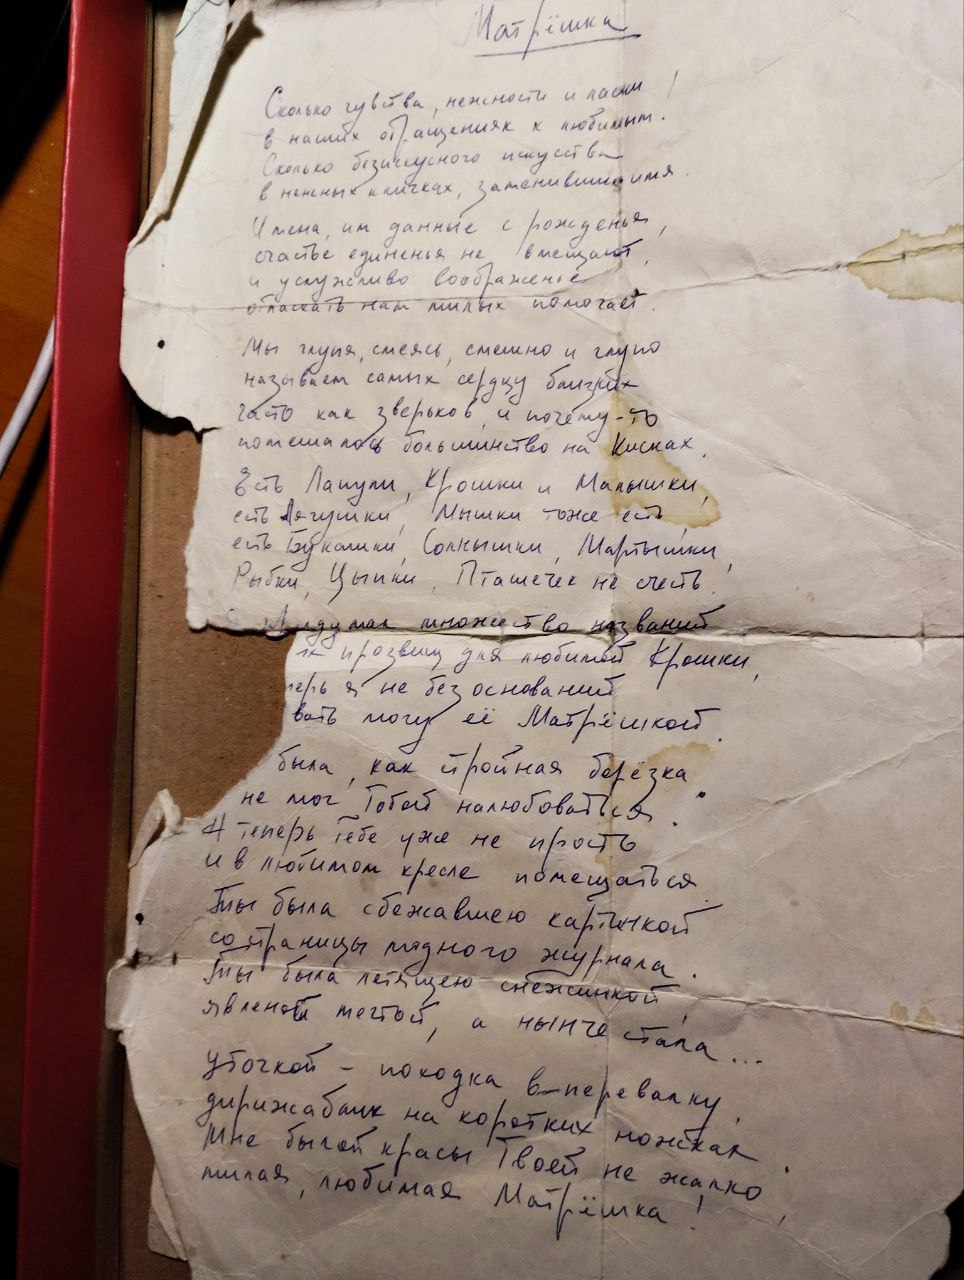 Матрёшка
Сколько чувства, нежности и ласки
в наших обращениях к любимым!
Сколько безискусного искусства
в нежных кличках, заменивших имя.
Имена, им данные с рожденья,
счастье единенья не вмещают,
и услужливо воображенье
отласкать нам милых помогает.
Мы глупя, смеясь, смешно и глупо
называем самых сердцу близких
часто как зверьков, и почему-то
помешалось большинство на Кисках.
Есть Лапули, Крошки и Малышки,
есть Лягушки, Мышки тоже есть,
есть Букашки, Солнышки, Мартышки,
Рыбки, Цыпки, Пташечек не счесть.
думал множество названий
прозвищ для любимой Крошки,
перь я не без оснований
вать могу её Матрёшкой.
была, как стройная берёзка
не мог Тобой налюбоваться.
А теперь Тебе уже не просто
и в любимом кресле помещаться.
Ты была сбежавшею картинкой
со страницы модного журнала.
Ты была летящею снежинкой,
явленой мечтой, а нынче стала...
уточкой - походка в-перевалку,
дирижаблик на коротких ножках.
Мне былой красы Твоей не жалко,
милая, любимая Матрёшка!